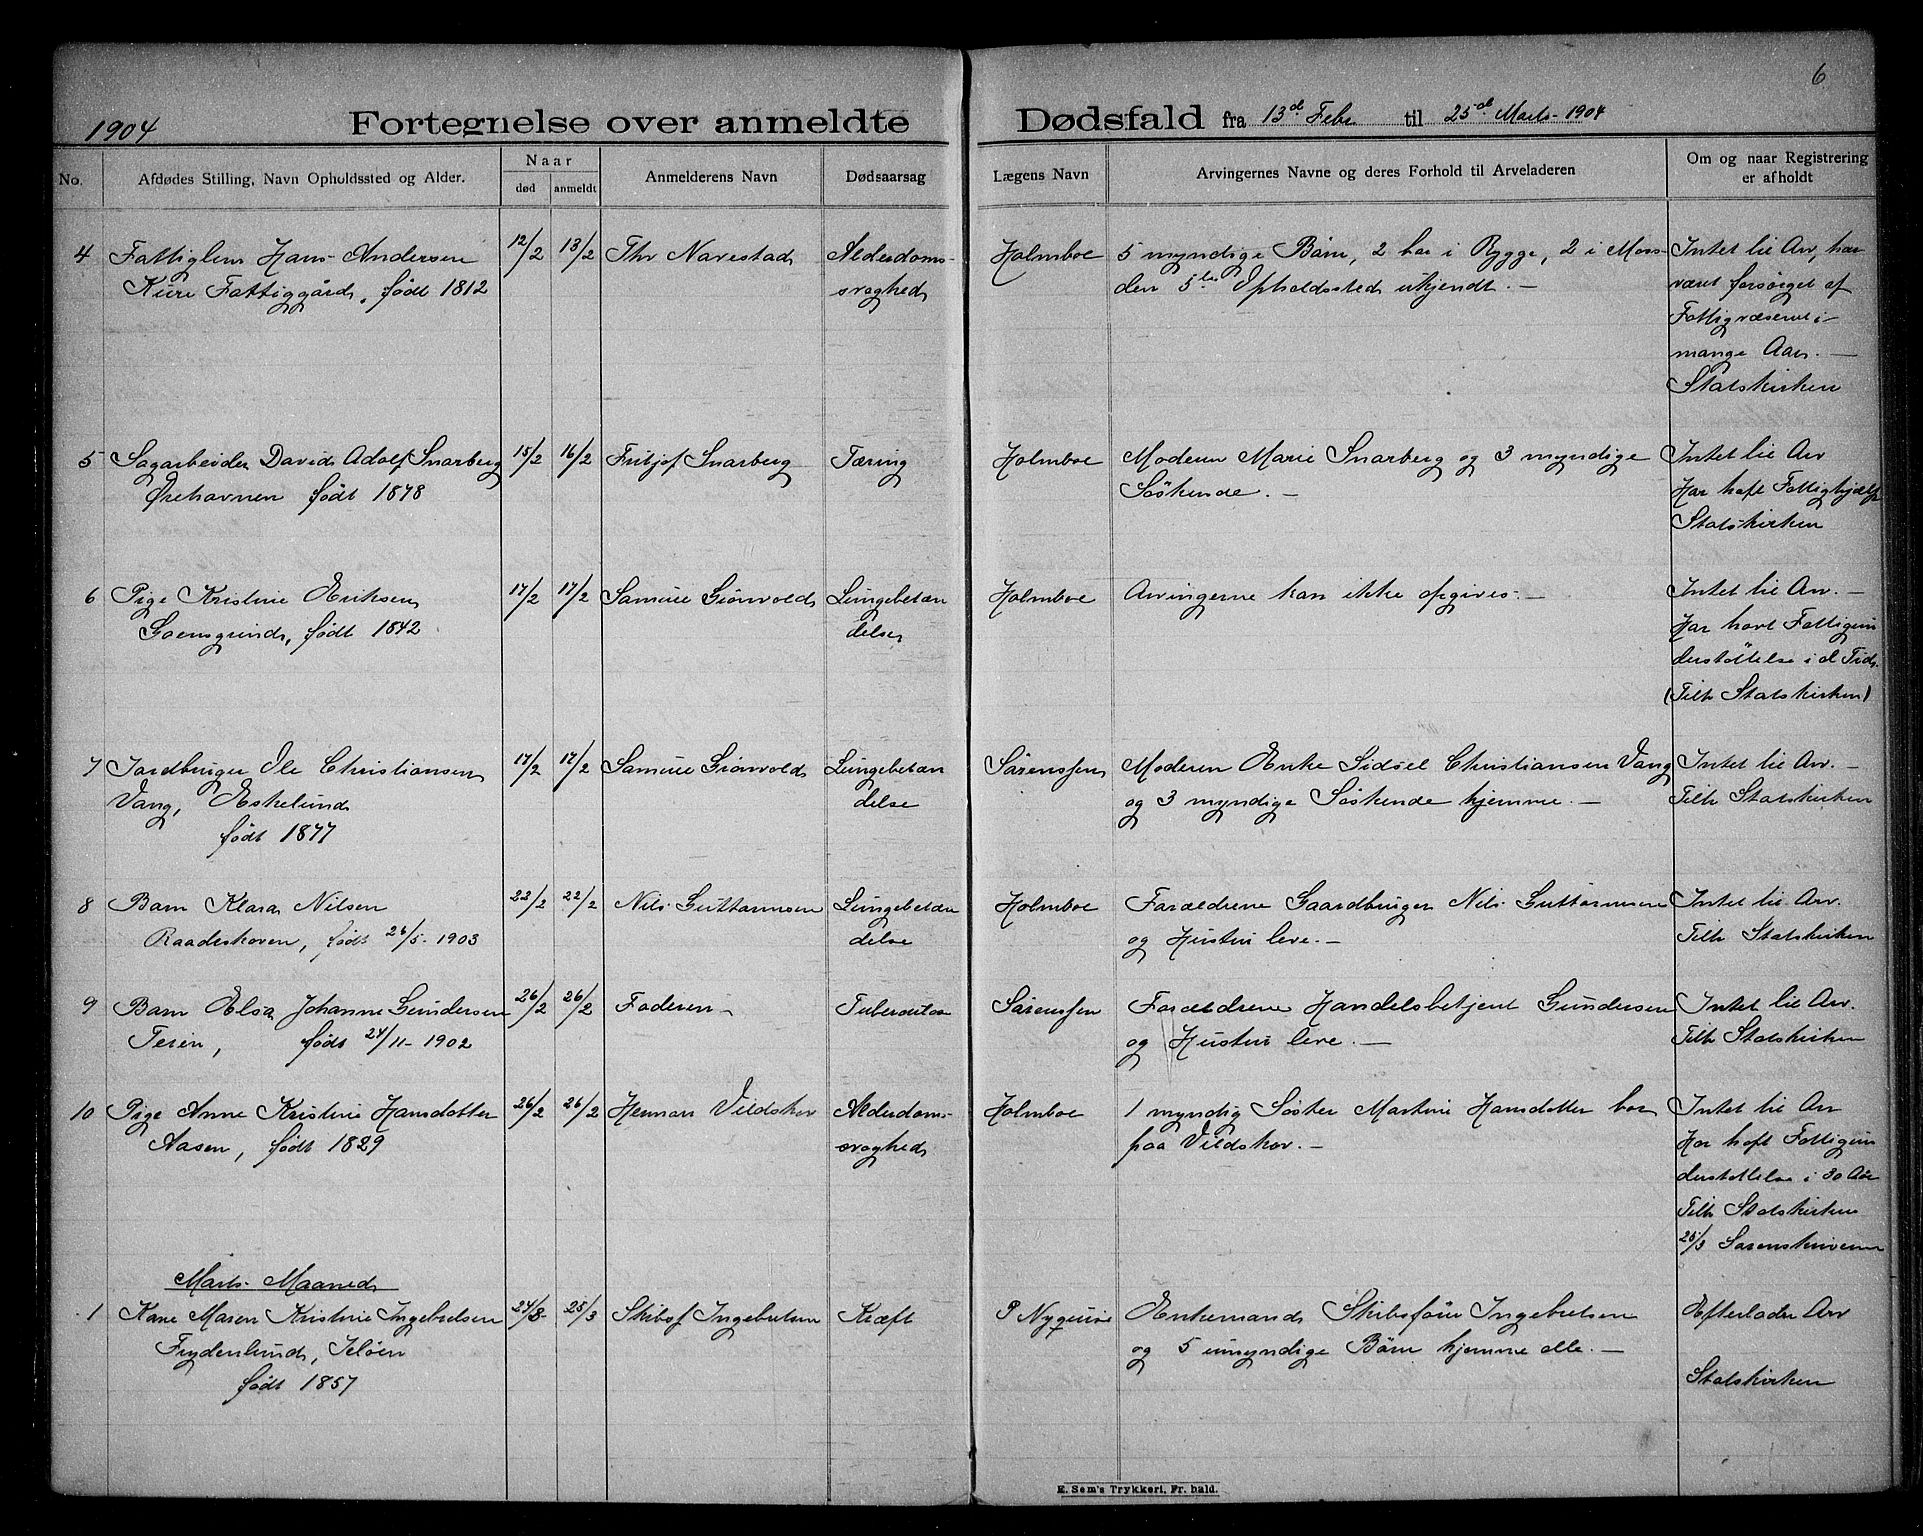 6
1904 Fortegnelse over anmeldte Dødsfald fra 13d Febr til 25d Marts 1904
No. Afdødes Stilling, Navn Opholdssted og Alder. Naar død anmeldt Anmelderens Navn Dødsaarsag Lægens Navn Arvingernes Navne og deres Forhold til Arveladeren Om og naar Registrering er afholdt
4 Fattiglem Hans Andersen 12/2 13/2 Thv Navestad Alderdoms- Holmboe 5 myndige Børn, 2 bor i Rygge, 2 i Moss Intet til Arv, har
Kure Fattiggård, født 1812 svaghed den 5te Opholdssted ukjendt. - været forsørget af
Fattigvæsenet i
mange Aar. -
Statskirken
5 Sagarbeider David Adolf Snarberg 15/2 16/2 Fritjof Snarberg Tæring Holmboe Moderen Marie Snarberg og 3 myndige Intet til Arv
Ørehavnen født 1878 Søskende. - Har haft Fattighjælp
Statskirken
6 Pige Kristine Eriksen 17/2 17/2 Samuel Grønvold Lungebetæn Holmboe Arvingerne kan ikke opgives. - Intet til Arv. -
Goensgrind, født 1842 delse Har havt Fattigun
derstøttelse i al Tid.
(Tilh Statskirken)
7 Jordbruger Ole Christiansen 17/2 17/2 Samuel Grønvold Lungebetæn Sørenssen Moderen Enke Sidsel Christiansen Vang Intet til Arv. -
Vang, Eskelund delse og 3 myndige Søskende hjemme. - Tilh Statskirken
født 1877
8 Barn Klara Nilsen 22/2 22/2 Nils Guttormsen Lungebetæn Holmboe Forældrene Gaardbruger Nils Guttormsen Intet til Arv.
Raadeskoven, født 26/5 1903 delse og Hustru leve. - Tilh Statskirken
9 Barn Elsa Johanne Gundersen 26/2 26/2 Faderen - Tuberculose Sørenssen Forældrene Handelsbetjent Gundersen Intet til Arv.
født 24/11 - 1902 og Hustru leve. - Tilh Statskirken
10 Pige Anne Kristine Hansdatter 26/2 26/2 Herman Vildskov Alderdoms- Holmboe 1 myndig Søster Martine Hansdatter bor Intet til Arv
Aasen, født 1829 svaghed paa Vildskov. - Har haft Fattigun
derstøttelse i 30 Aar
Tilh Statskirken
25/3 Sorenskriveren
Marts Maaned
1 Kone Maren Kristine Ingebretsen 24/3 25/3 Skibsf Ingebretsen Kræft P Nyquist Enkemand Skibsfører Ingebretsen Efterlader Arv
Frydenlund, Jeløen og 5 umyndige Børn hjemme alle. -
født 1857 Statskirken
E. Sem's Trykkeri, Fr. hald.